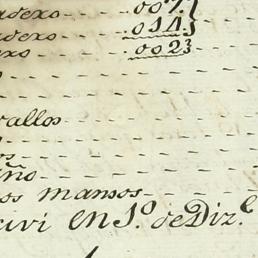 adexo-- .007
adexo-- .014
exo-- .0023
vallos
os
ño
os mansos
civi en S.º de Diz.e